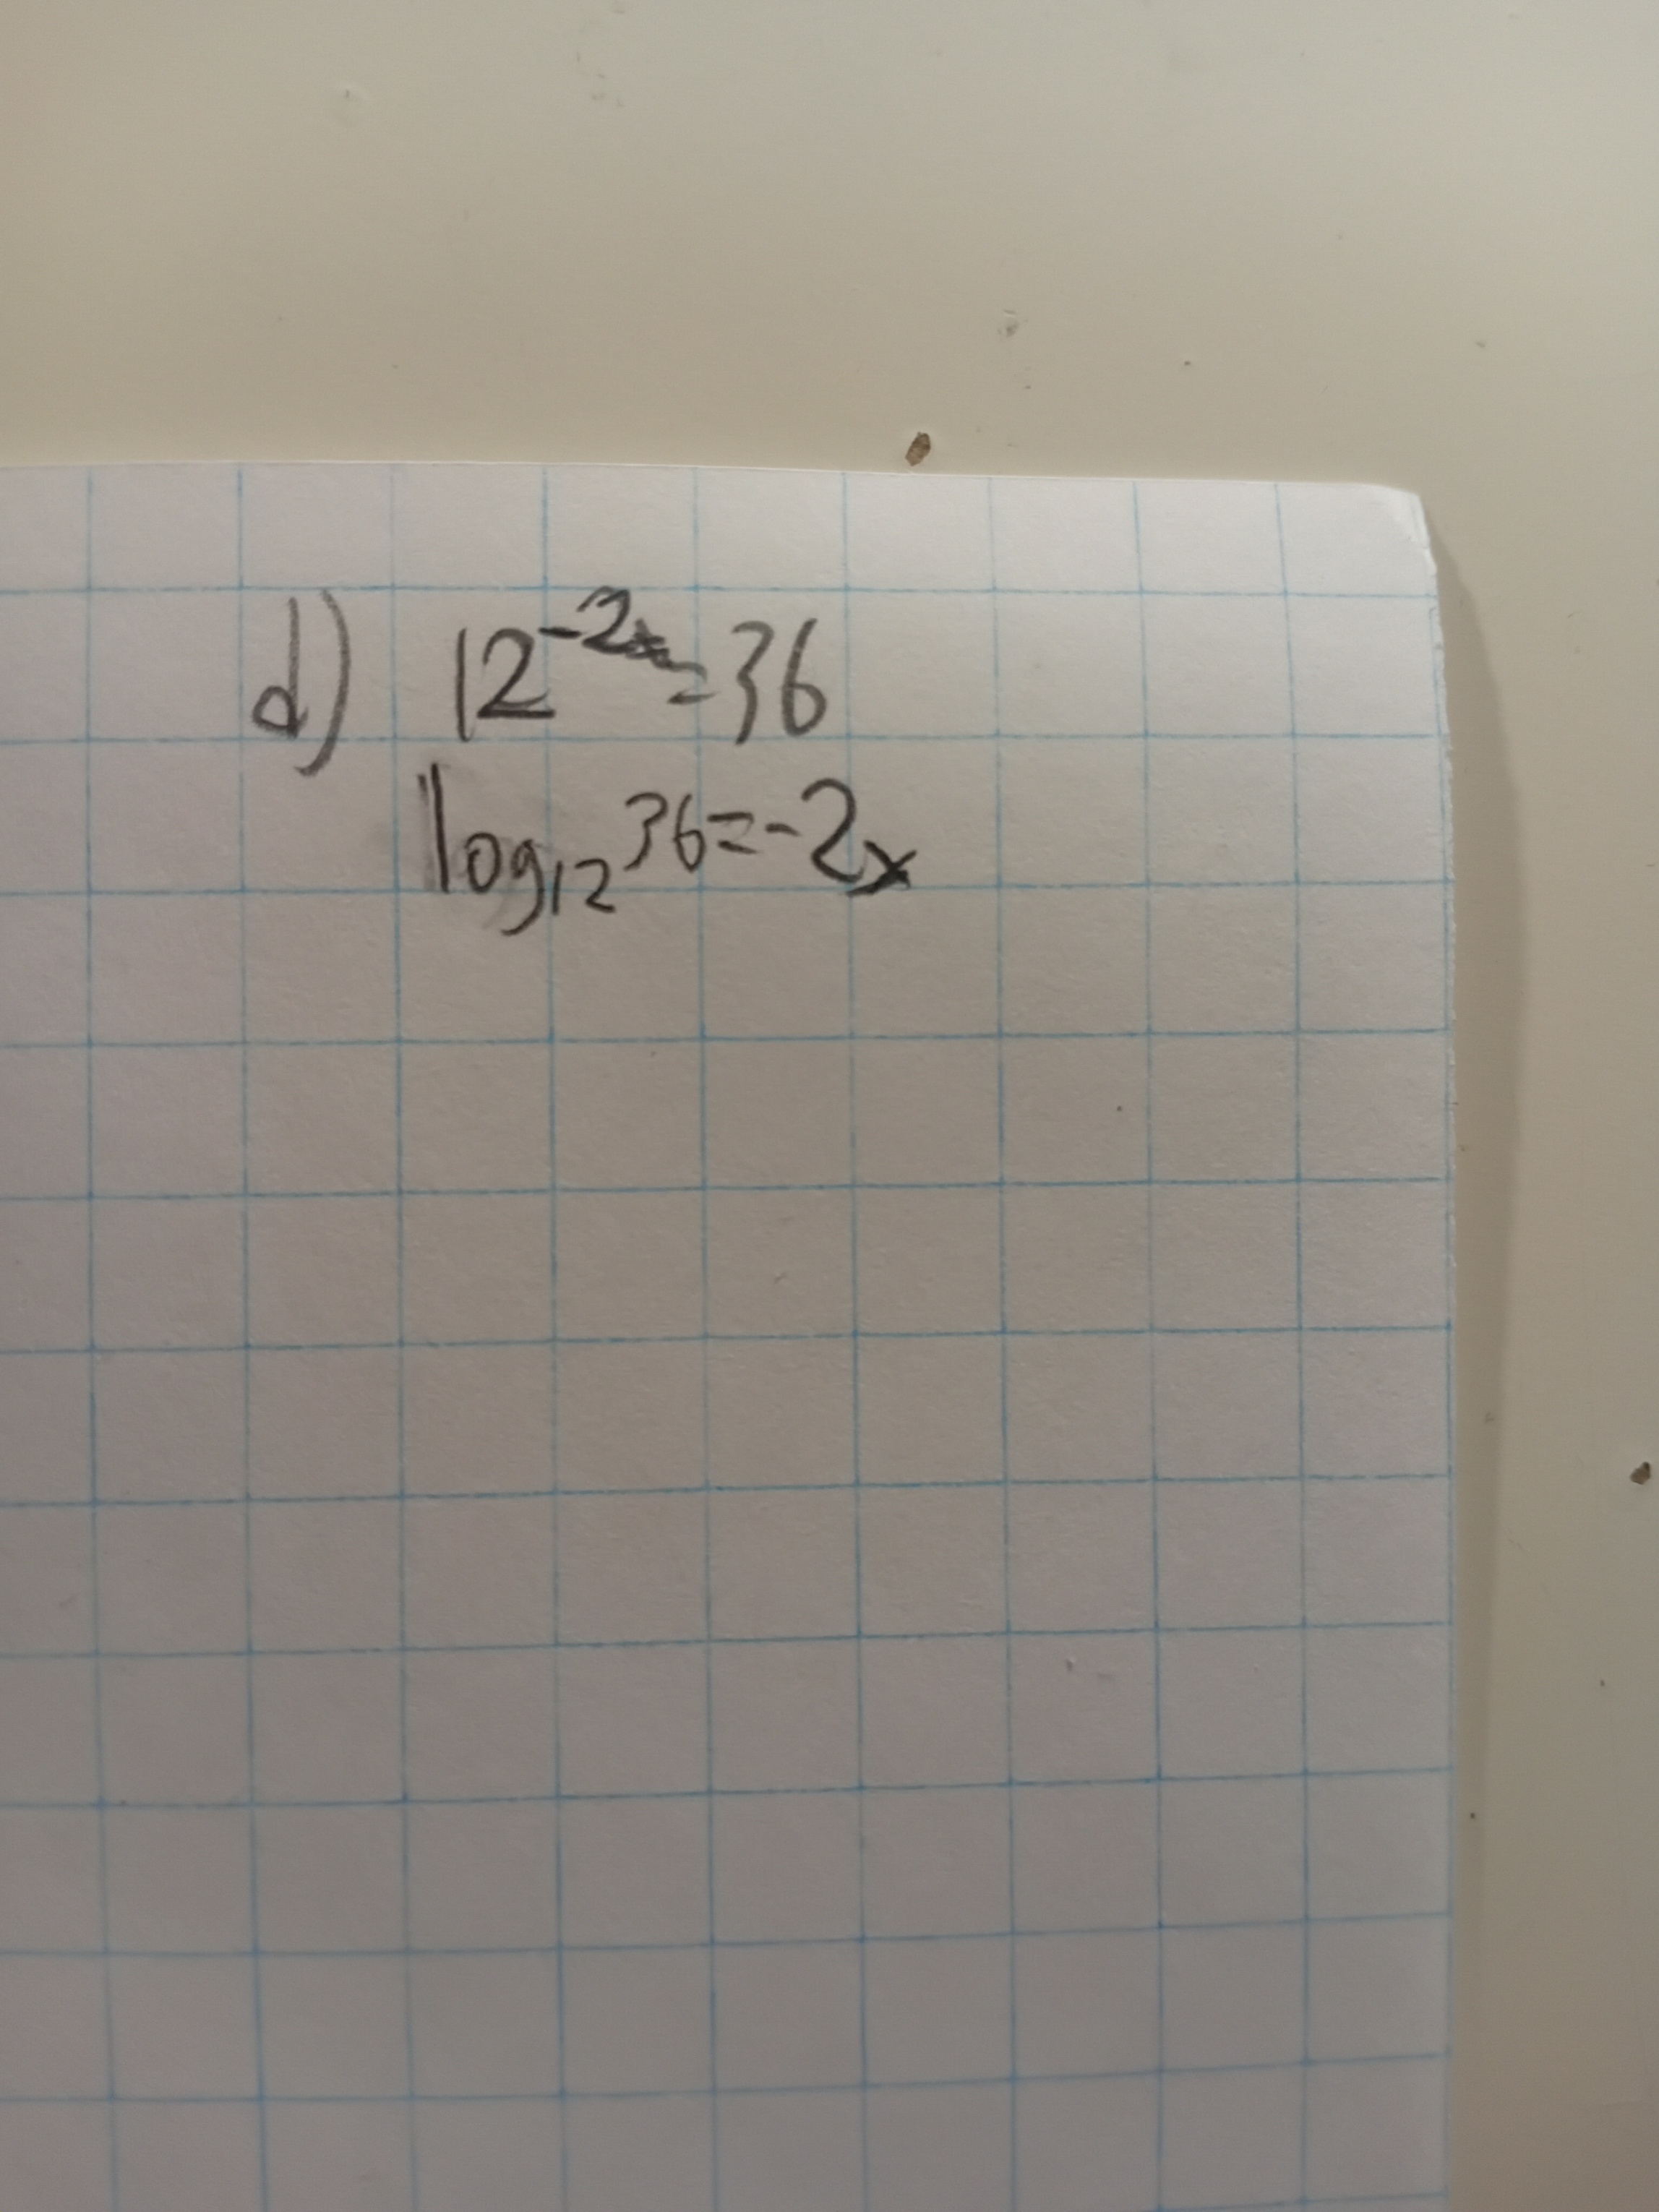 d) 12⁻²ˣ=36
log₁₂36=-2x